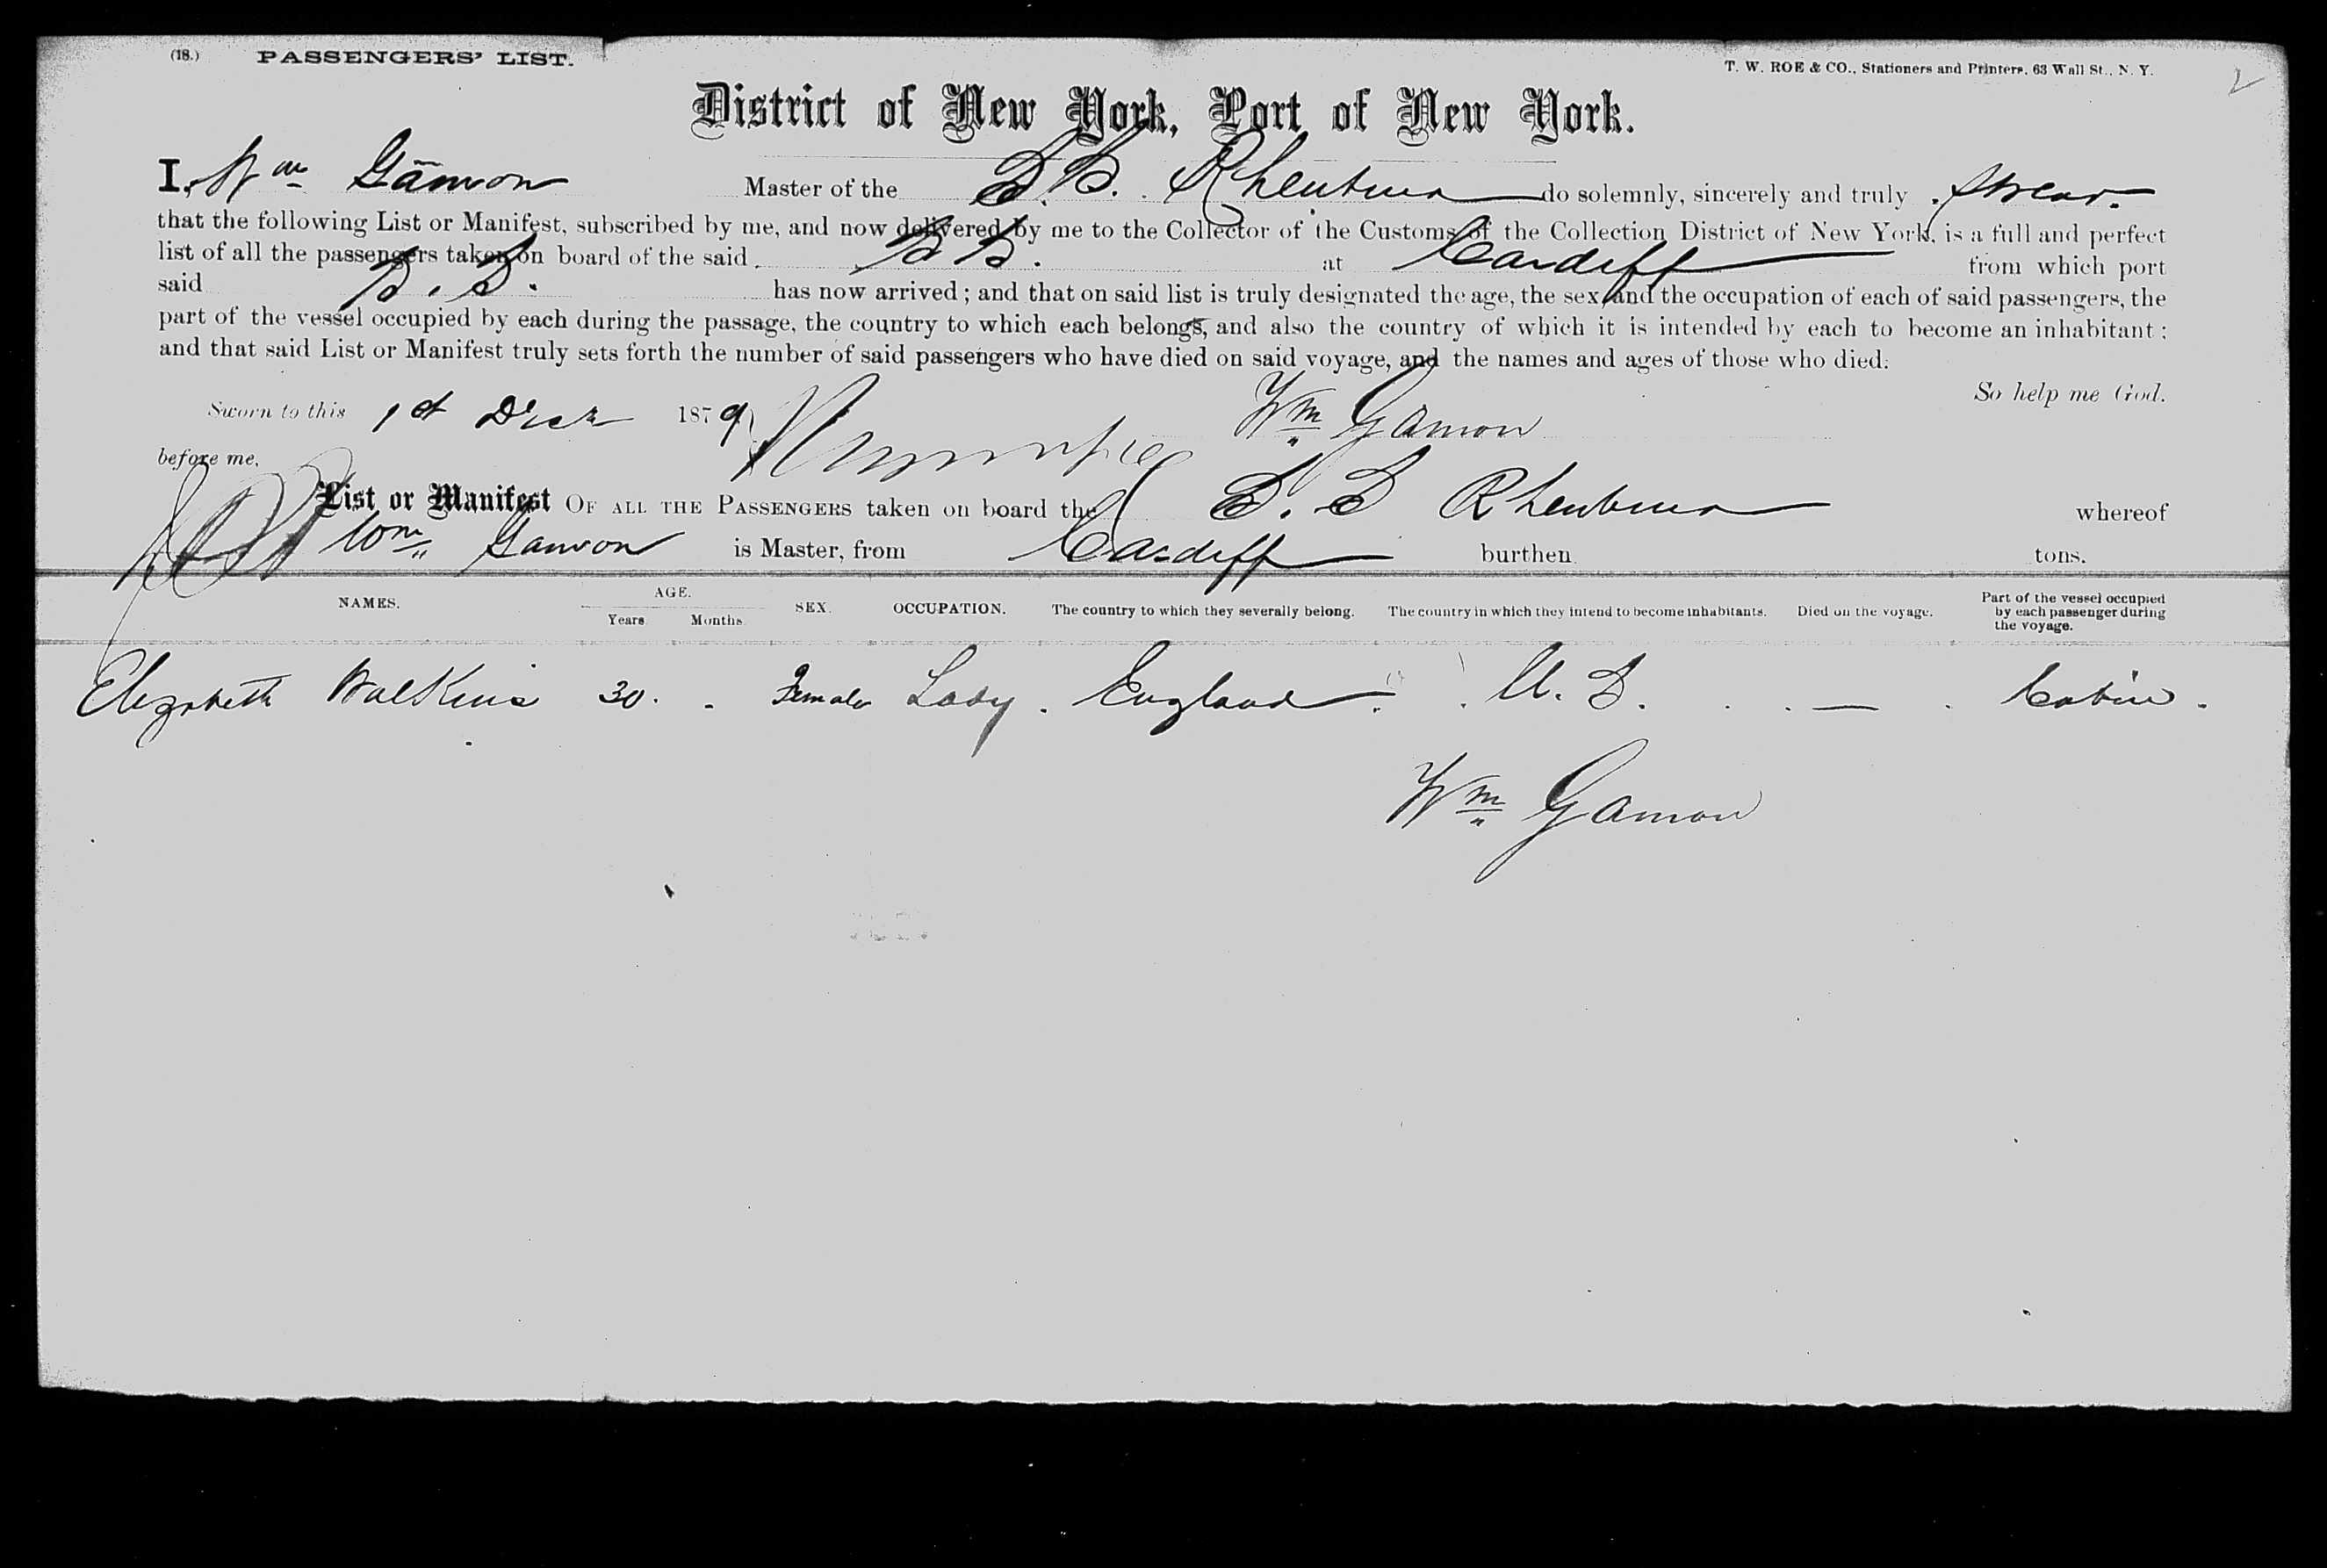 (18.) PASSENGERS' LIST.
T. W. ROE & CO., Stationers and Printers, 63 Wall St., N. Y.
2
District of New York, Port of New York.
I, Wm Gamon Master of the S.S. Rheubina do solemnly, sincerely and truly swear.
that the following List or Manifest, subscribed by me, and now delivered by me to the Collector of the Customs of the Collection District of New York, is a full and perfect
list of all the passengers taken on board of the said S S. at Cardiff from which port
said S. S. has now arrived; and that on said list is truly designated the age, the sex and the occupation of each of said passengers, the
part of the vessel occupied by each during the passage, the country to which each belongs, and also the country of which it is intended by each to become an inhabitant;
and that said List or Manifest truly sets forth the number of said passengers who have died on said voyage, and the names and ages of those who died.
So help me God.
Sworn to this 1st Decr 1879 Wm Gamon
before me,
List or Manifest OF ALL THE PASSENGERS taken on board the S. S Rheubina whereof
Wm Gamon is Master, from Cardiff burthen tons.
NAMES. AGE. Years Months SEX. OCCUPATION. The country to which they severally belong. The country in which they intend to become inhabitants. Died on the voyage. Part of the vessel occupied by each passenger during the voyage.
Elizabeth Walkins 30. Female Lady. England. U. S. — Cabin.
Wm Gamon